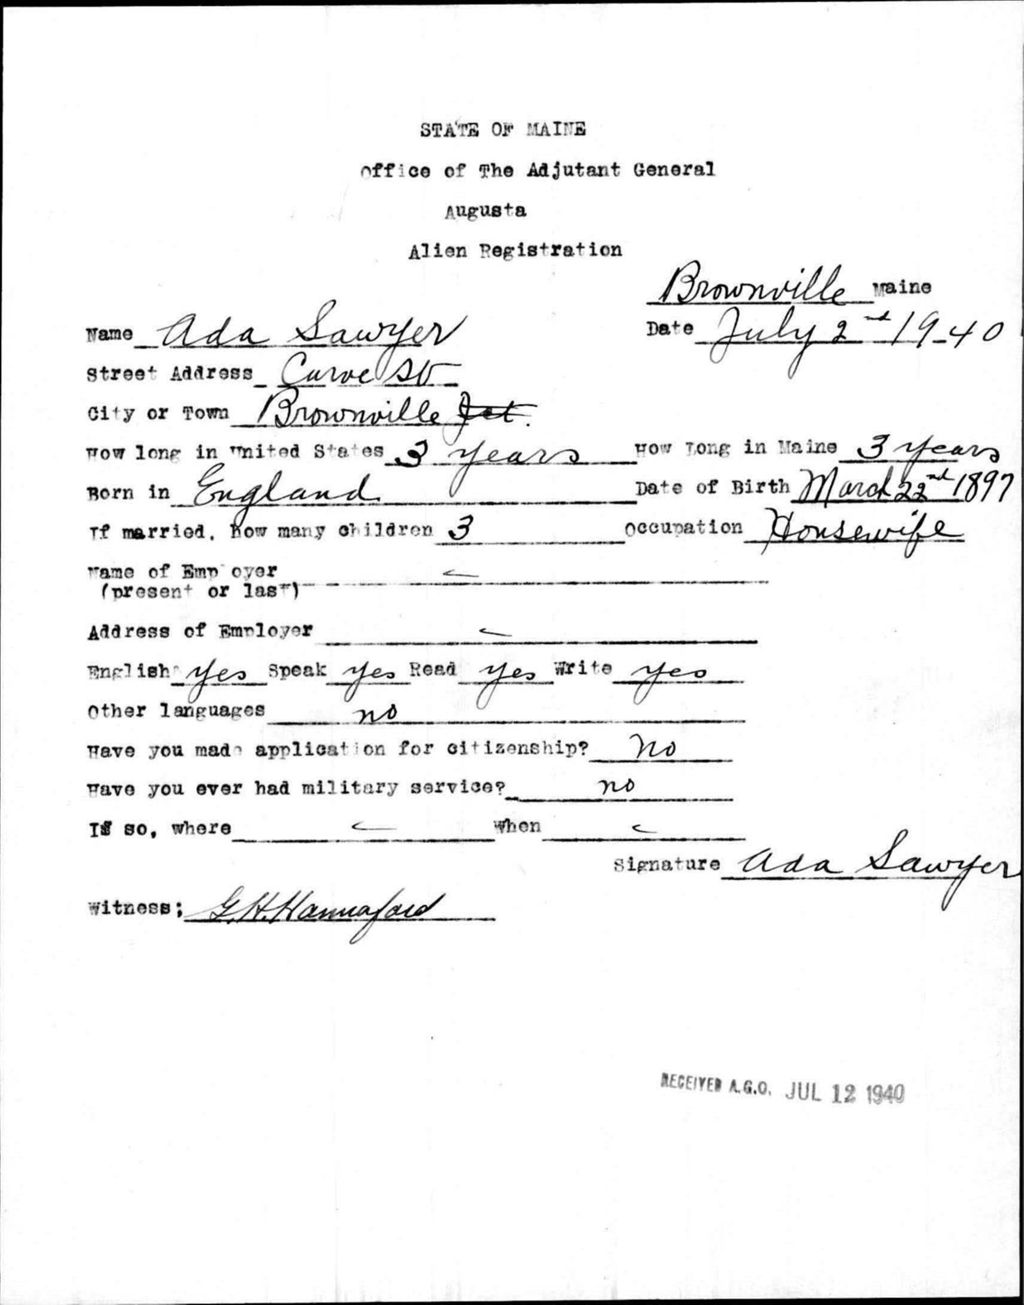 STATE OF MAINE
Office of The Adjutant General
Augusta
Alien Registration
Brownville Maine
Name Ada Sawyer Date July 2nd 1940
Street Address Curve St
City or Town Brownville Jct.
How long in United States 3 years How Long in Maine 3 years
Born in England Date of Birth March 22nd 1897
If married, how many children 3 Occupation Housewife
Name of Employer
(present or last)
Address of Employer
English Yes Speak yes Read yes Write yes
Other languages no
Have you made application for citizenship? No
Have you ever had military service? no
If so, where When
Signature Ada Sawyer
Witness; G.H. Hannaford
RECEIVED A.G.O. JUL 12 1940